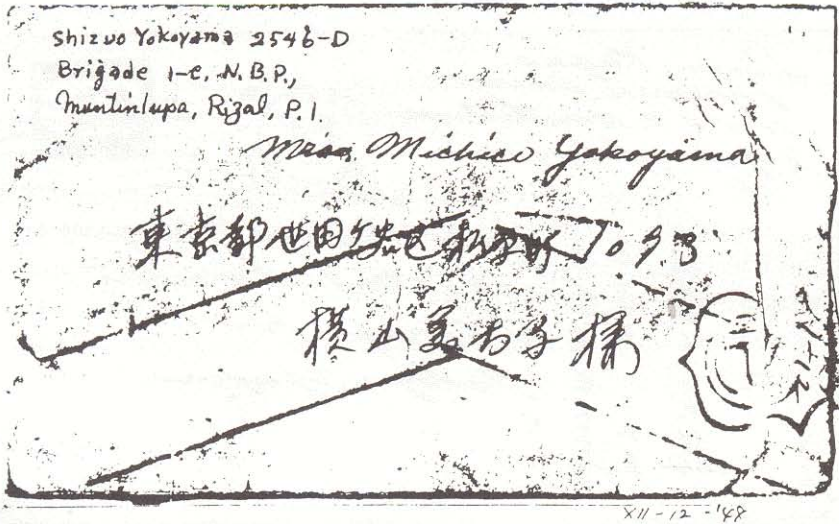 Shizuo Yokoyama 2546-D
Brigade 1-C, N.B.P.,
Muntinlupa, Rizal, P.I.
Michico Yokoyama
東京都世田ヶ谷区
横山美 子 様
XII-12-'48